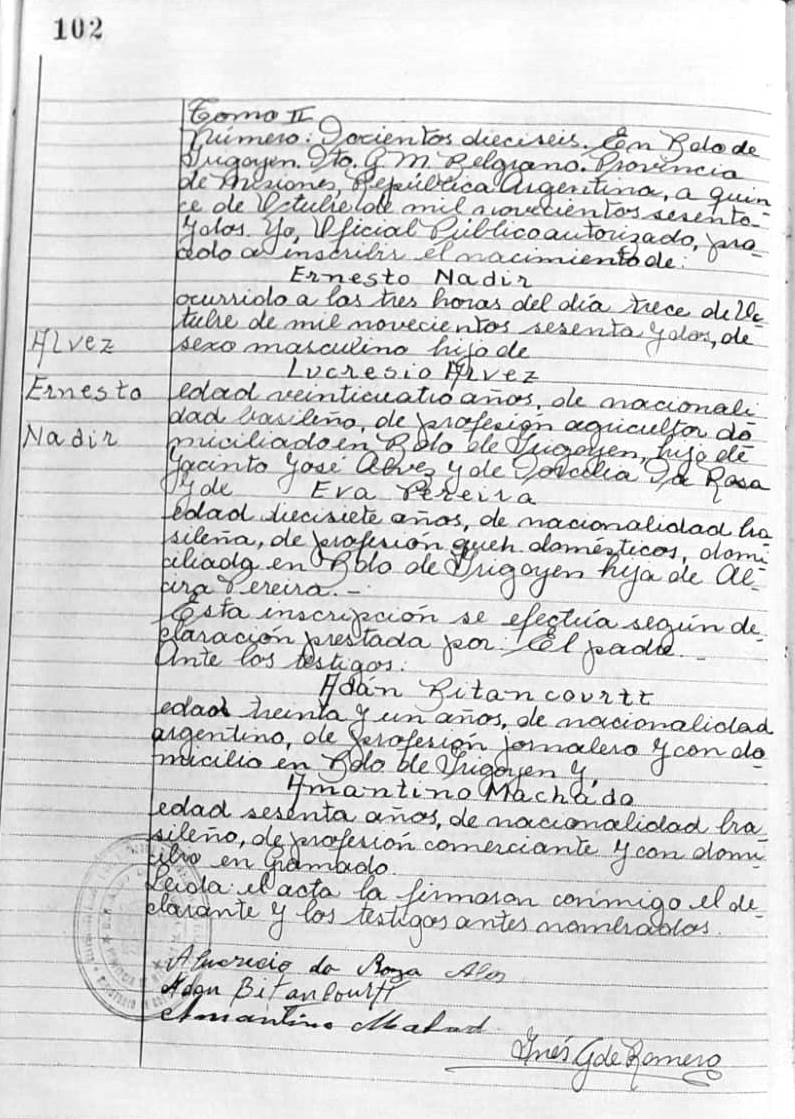 102
Tomo II
Número: Docientos dieciseis. En Bdo de
Irigoyen. Dto. G. M. Belgrano. Provincia
de Misiones, República Argentina, a quin-
ce de Octubre de mil novecientos sesenta
y dos. Yo, Oficial Público autorizado, pro-
cedo a inscribir el nacimiento de:
Ernesto Nadir
ocurrido a las tres horas del día trece de Oc-
tubre de mil novecientos sesenta y dos, de
Alvez
sexo masculino hijo de
Lucresio Alvez
Ernesto
edad veinticuatro años, de nacionali-
dad basileño, de profesión agricultor do-
Nadir
miciliado en Bdo de Irigoyen, hijo de
Jacinto José Alvez y de Dorcelia Da Rosa
y de Eva Pereira
edad diecisiete años, de nacionalidad bra-
sileña, de profesión queh domésticos, domi-
ciliada en Bdo de Irigoyen hija de Al-
cira Pereira.-
Esta inscripción se efectúa según de-
claración prestada por: El padre.-
Ante los testigos:
Adán Bitancourtt
edad treinta y un años, de nacionalidad
argentino, de profesión jornalero y con do-
micilio en Bdo de Irigoyen y,
Amantino Machado
edad sesenta años, de nacionalidad bra-
sileño, de profesión comerciante y con domi-
cilio en Gramado.
Leida el acta la firmaron conmigo el de-
clarante y los testigos antes nombrados.
da Roza
Adan Bitancourtt
Amantino
Inés G de Romero